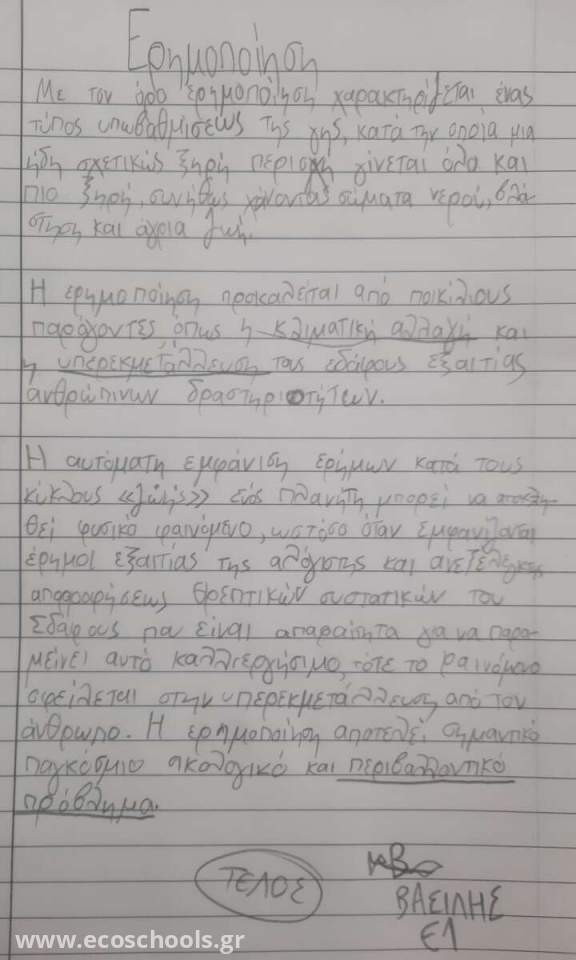 Ερημοποίηση
Με τον όρο ερημοποίηση χαρακτηρίζεται ένας
τύπος υποβαθμίσεως της γης, κατά την οποία μια
ήδη σχετικώς ξηρή περιοχή γίνεται όλο και
πιο ξηρή, συνήθως χάνοντας σώματα νερού, βλά-
στηση και άγρια ζωή.
Η ερημοποίηση προκαλείται από ποικίλους
παράγοντες, όπως η κλιματική αλλαγή και
η υπερεκμετάλλευση του εδάφους εξαιτίας
ανθρώπινων δραστηριοτήτων.
Η αυτόματη εμφάνιση ερήμων κατά τους
κύκλους «ζωής» ενός πλανήτη μπορεί να αποκλη-
θεί φυσικό φαινόμενο, ωστόσο όταν εμφανίζονται
έρημοι εξαιτίας της αλόγιστης και ανεξέλεγκτης
απορροφήσεως θρεπτικών συστατικών του
εδάφους που είναι απαραίτητα για να παρα-
μείνει αυτό καλλιεργήσιμο, τότε το φαινόμενο
οφείλεται στην υπερεκμετάλλευση από τον
άνθρωπο. Η ερημοποίηση αποτελεί σημαντικό
παγκόσμιο οικολογικό και περιβαλλοντικό
πρόβλημα.
ΤΕΛΟΣ
ΒΑΣΙΛΗΣ
Ε1
www.ecoschools.gr